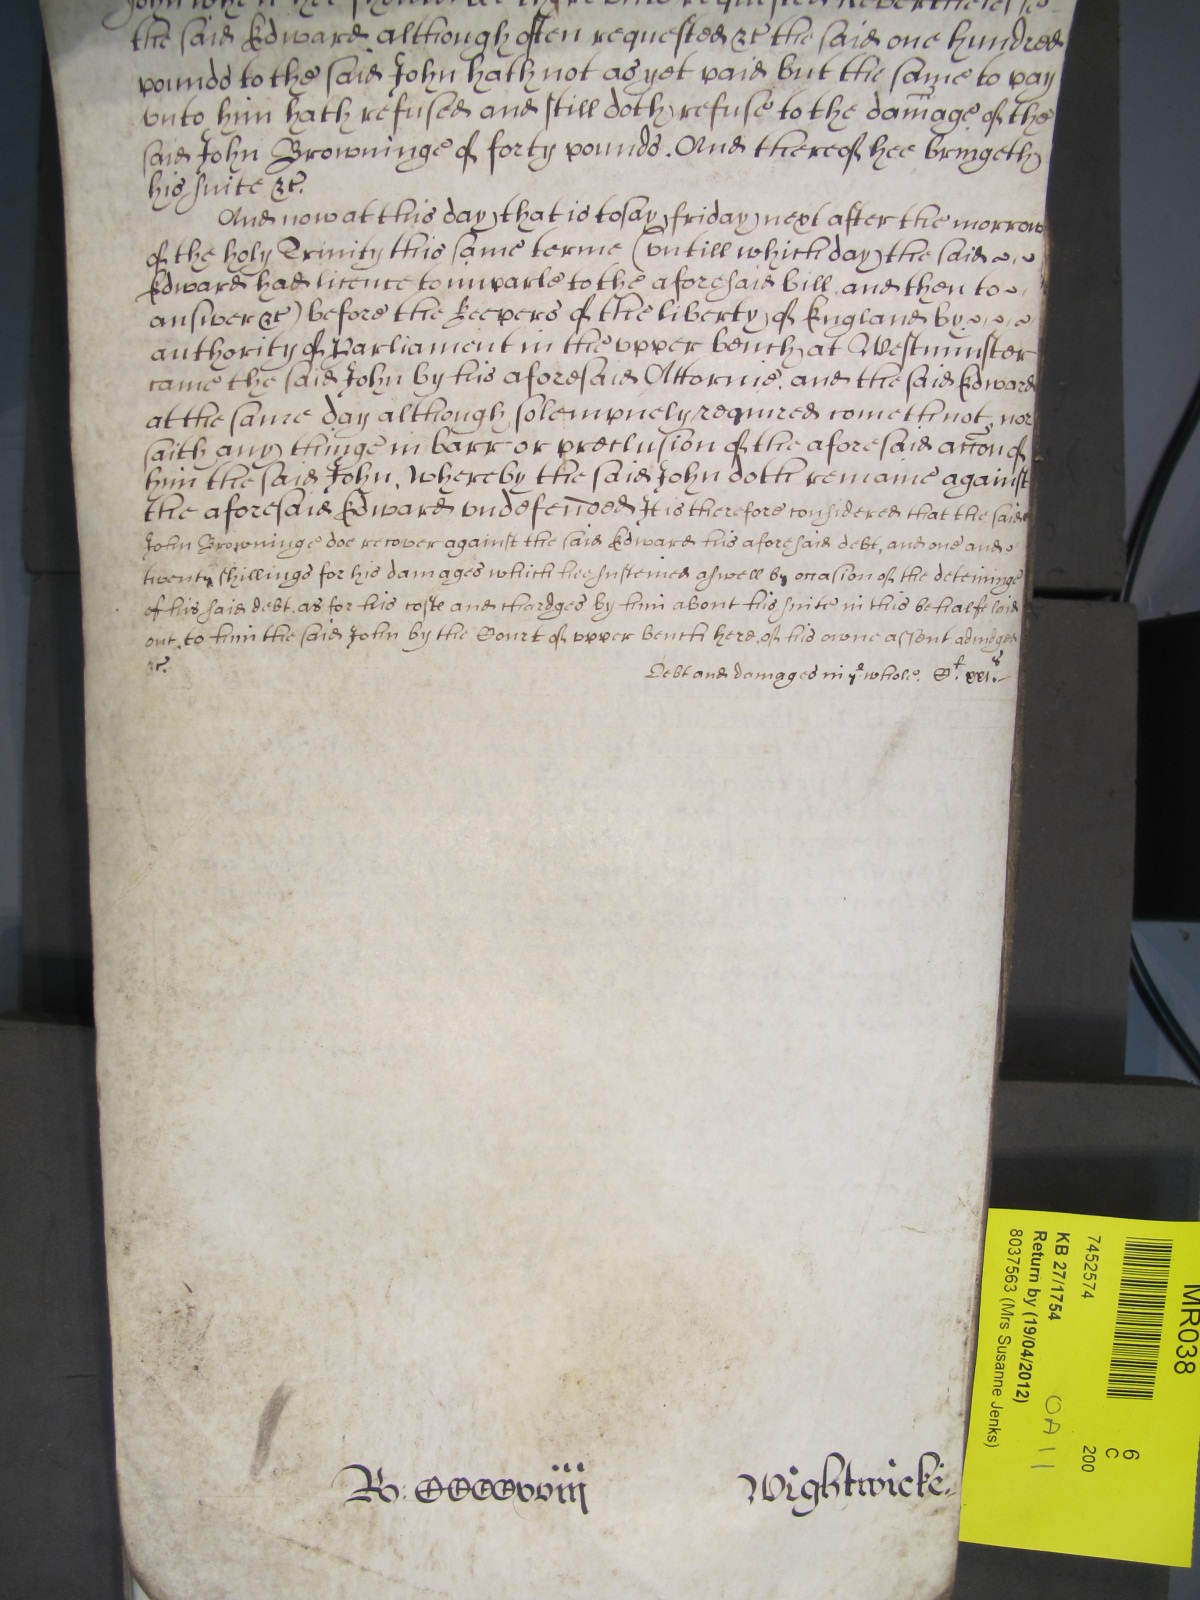 John when hee should be thereunto requested Neverthelesse
the said Edward although often requested &c the said one hundred
pounds to the said John hath not as yet paid but the same to pay
vnto him hath refused and still doth refuse to the damage of the
said John Browninge of forty pounds. And thereof hee bringeth
his suite &c.
And now at this day that is to say friday next after the morrow
of the holy Trinity this same terme (vntill which day the said
Edward had licence to imparle to the aforesaid bill and then to
answer &c) before the keepers of the liberty of England by
authority of Parliament in the vpper bench at Westminster
came the said John by his aforesaid Attornie. and the said Edward
at the same day although solempnely required cometh not, nor
saith any thinge in barr or preclusion of the aforesaid accon of
him the said John, Whereby the said John doth remaine against
the aforesaid Edward vndefended It is therefore considered that the said
John Browninge doe recover against the said Edward his aforesaid debt, and one and
twenty shillings for his damages which hee susteined aswell by occasion of the deteininge
of his said debt. as for his costs and chardges by him about his suite in this behalfe laid
out, to him the said John by the Court of vpper bench here, of his owne assent adiudged
&c.
Debt and damages in ye whole. Cl. xxis.
Ro. CCCCxviii
Wightwicke.
MR038
7452574
KB 27/1754
Return by (19/04/2012)
8037563 (Mrs Susanne Jenks)
6
C
200
OA 11